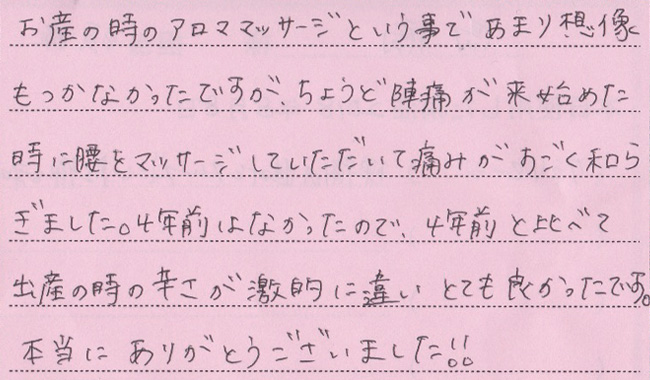 お産の時のアロママッサージという事であまり想像
もつかなかったですが、ちょうど陣痛が来始めた
時に腰をマッサージしていただいて痛みがすごく和ら
ぎました。4年前はなかったので、4年前と比べて
出産の時の辛さが激的に違いとても良かったです。
本当にありがとうございました!!